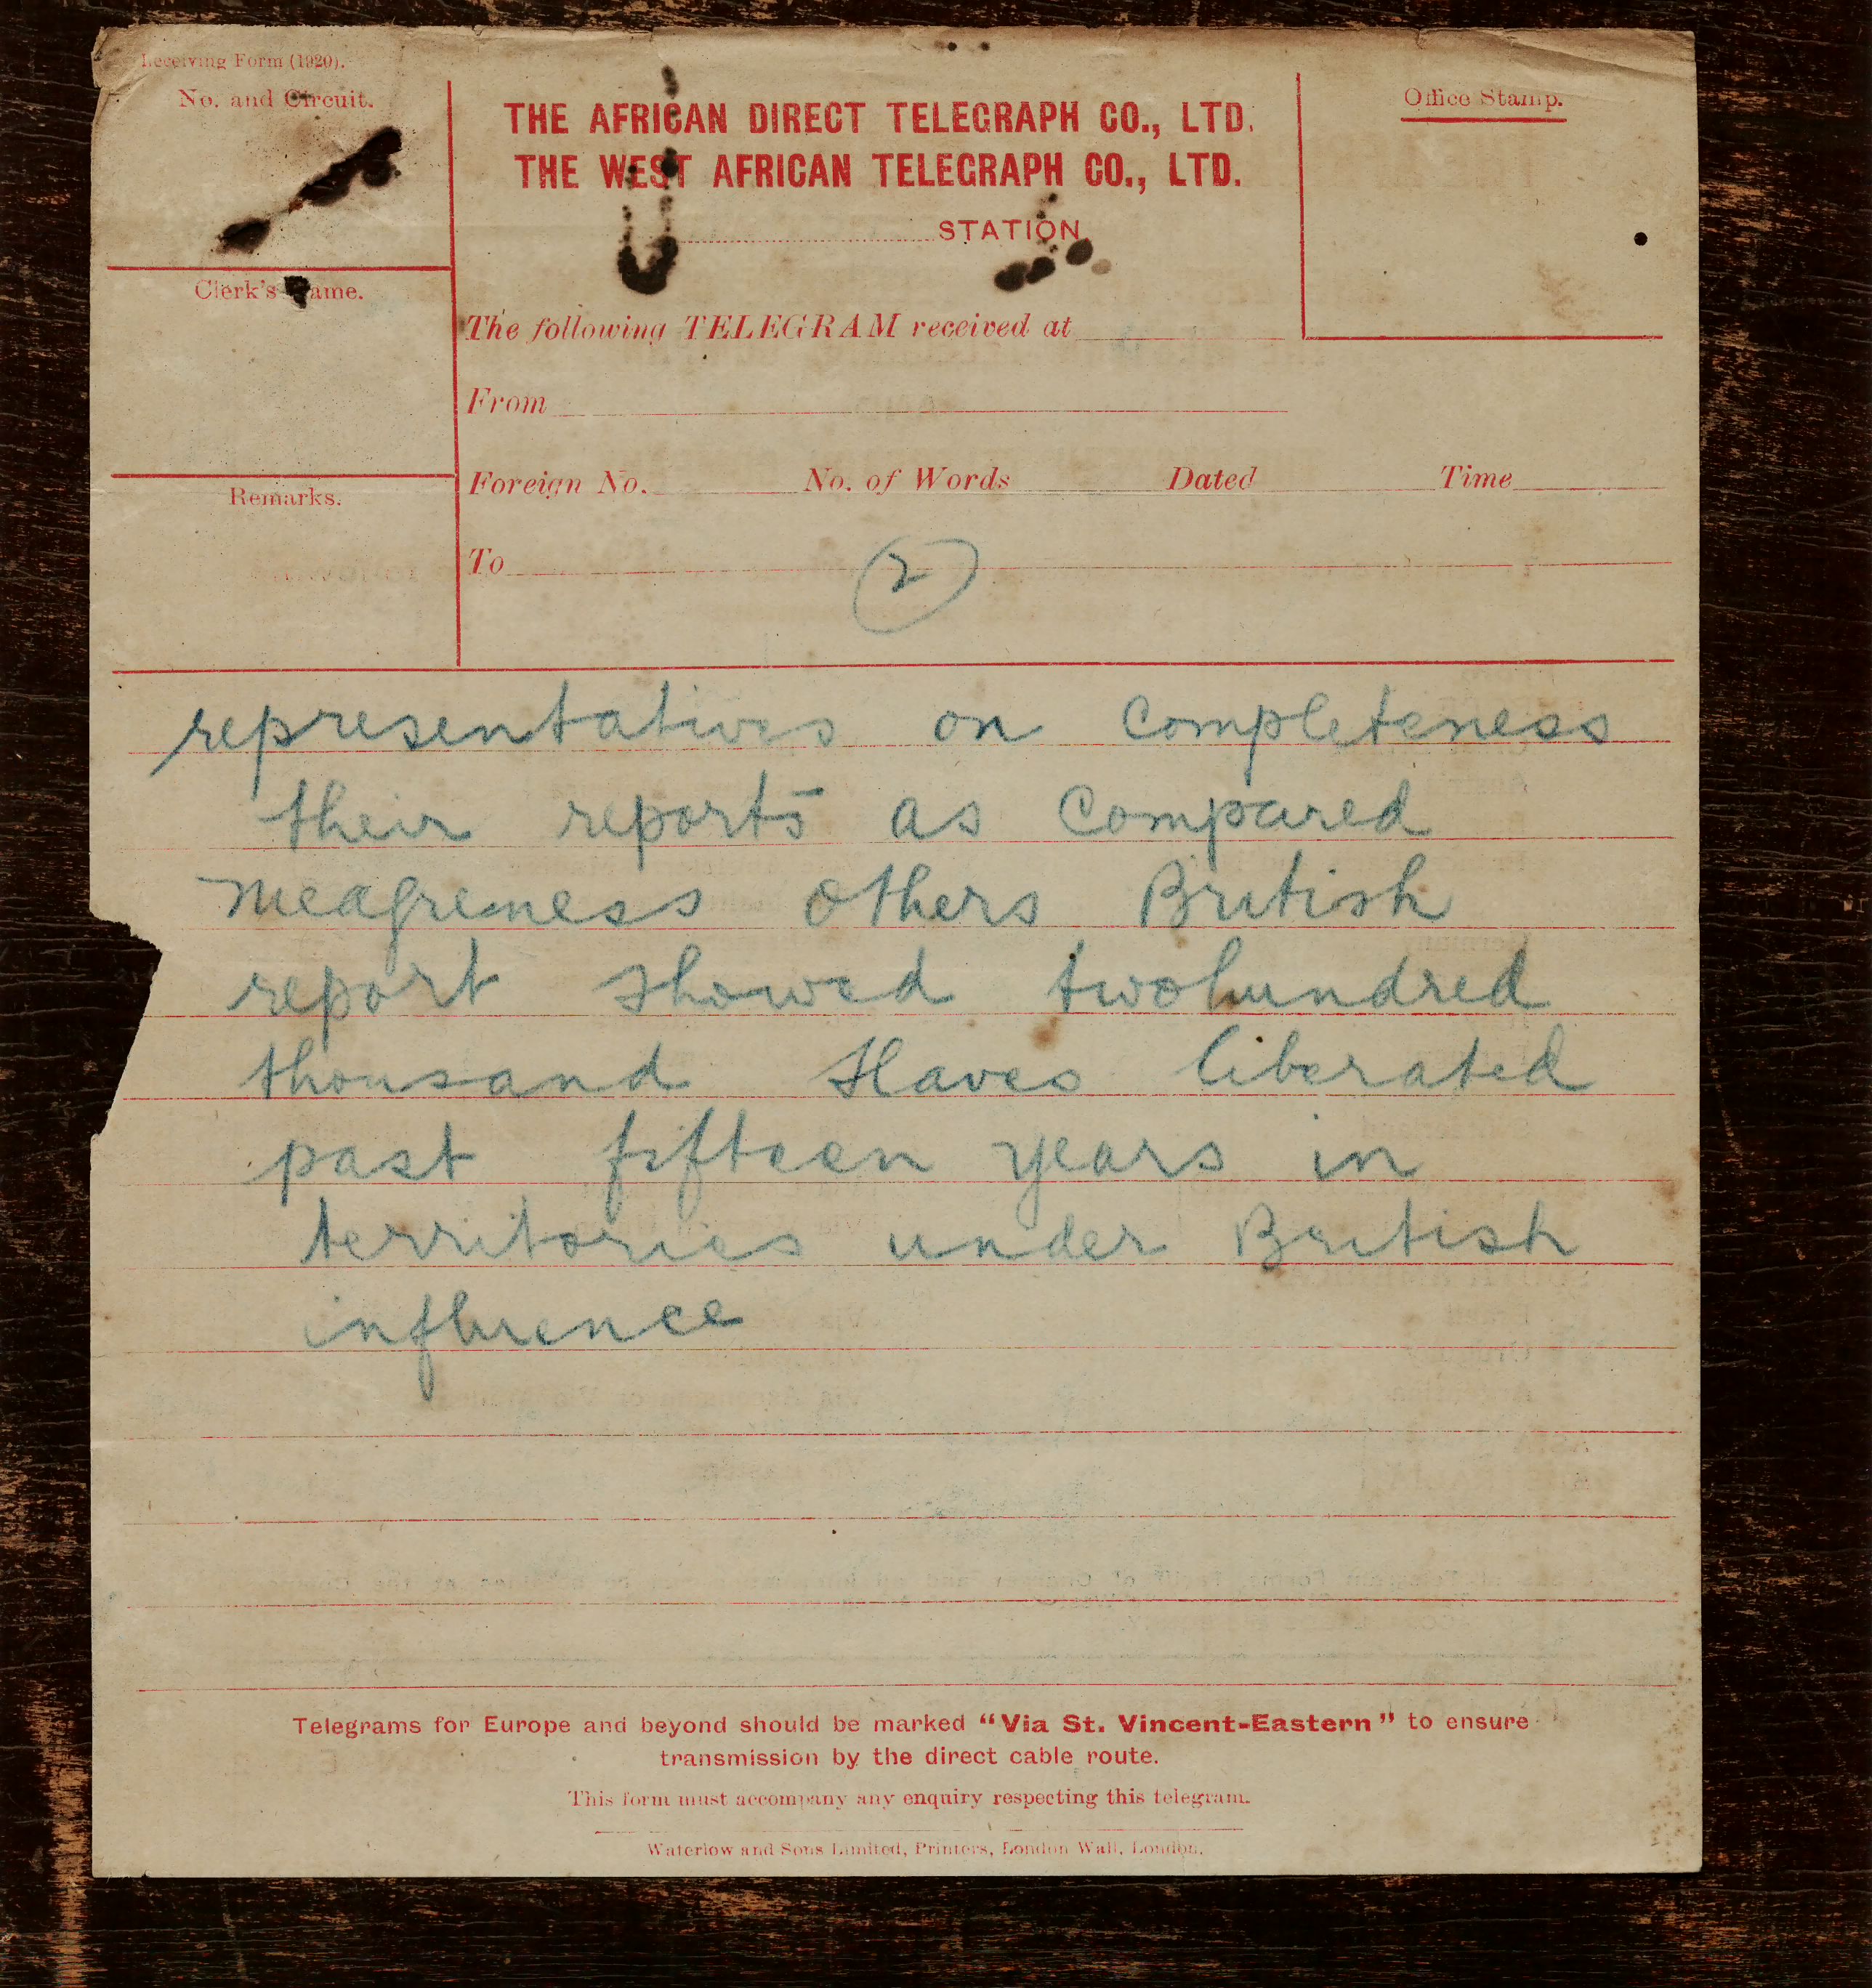 Receiving Form (1920).
No. and Circuit.
THE AFRICAN DIRECT TELEGRAPH CO., LTD.
THE WEST AFRICAN TELEGRAPH CO., LTD.
STATION
Office Stamp.
Clerk's Name.
The following TELEGRAM received at
From
Foreign No. No. of Words Dated Time
Remarks.
To
2
representatives on completeness
their reports as compared
meagreness others British
report showed twohundred
thousand slaves liberated
past fifteen years in
territories under British
influence
Telegrams for Europe and beyond should be marked "Via St. Vincent-Eastern" to ensure
transmission by the direct cable route.
This form must accompany any enquiry respecting this telegram.
Waterlow and Sons Limited, Printers, London Wall, London.